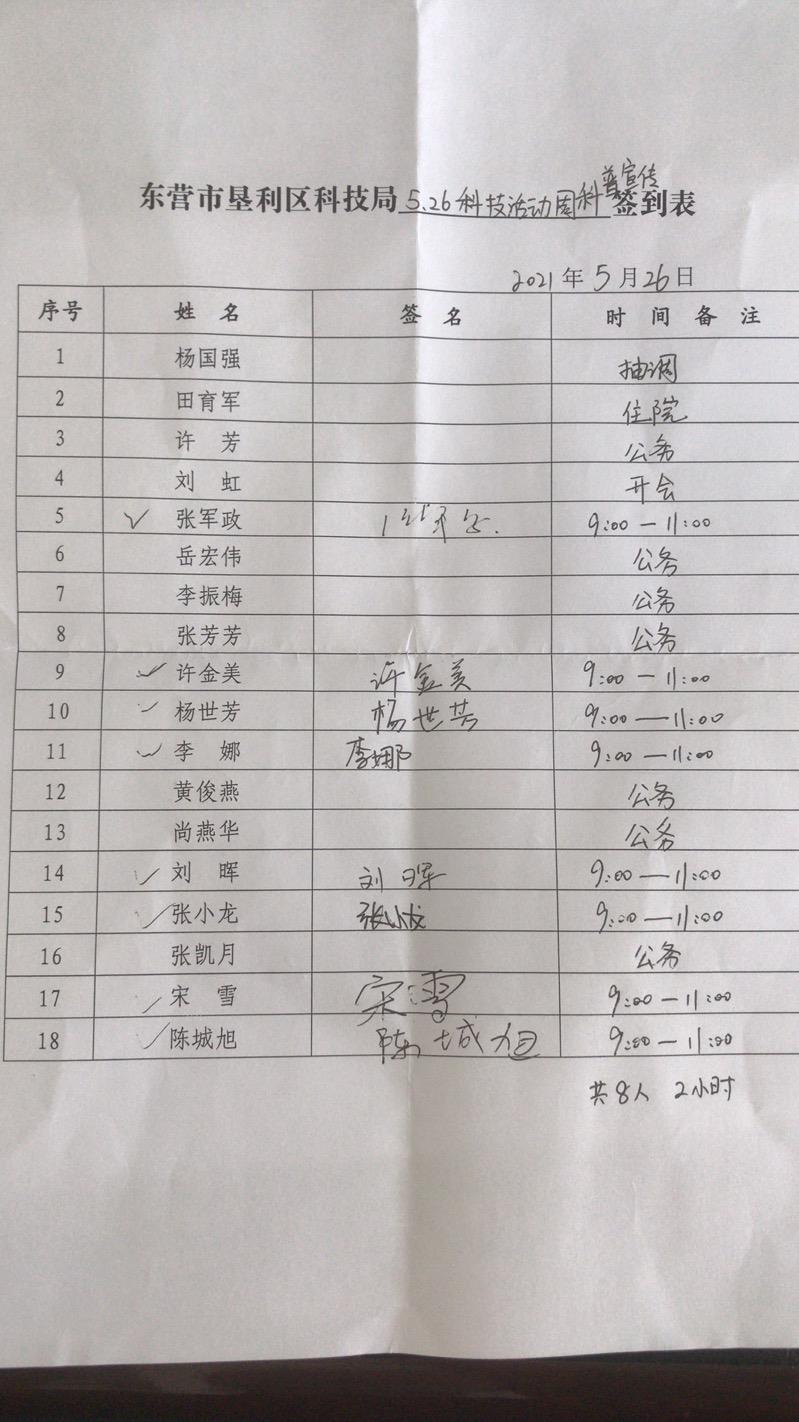 东营市垦利区科技局5.26科技活动周科普宣传签到表
2021年5月26日
序号 姓 名 签 名 时 间 备 注
1 杨国强 抽调
2 田育军 住院
3 许 芳 公务
4 刘 虹 开会
5 ✓ 张军政 9:00—11:00
6 岳宏伟 公务
7 李振梅 公务
8 张芳芳 公务
9 ✓ 许金美 许金美 9:00—11:00
10 ✓ 杨世芳 杨世芳 9:00—11:00
11 ✓ 李 娜 李娜 9:00—11:00
12 黄俊燕 公务
13 尚燕华 公务
14 ✓ 刘 晖 刘晖 9:00—11:00
15 ✓ 张小龙 张小龙 9:00—11:00
16 张凯月 公务
17 ✓ 宋 雪 宋雪 9:00—11:00
18 ✓ 陈城旭 陈城旭 9:00—11:00
共8人 2小时